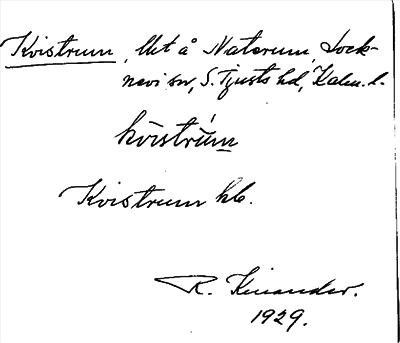 Kvistrum, lht å Natorum, Lock-
nevi sn, S. Tjusts hd, Kalm. l.
kvistrum
Kvistrum hb.
R. Kinander.
1929.